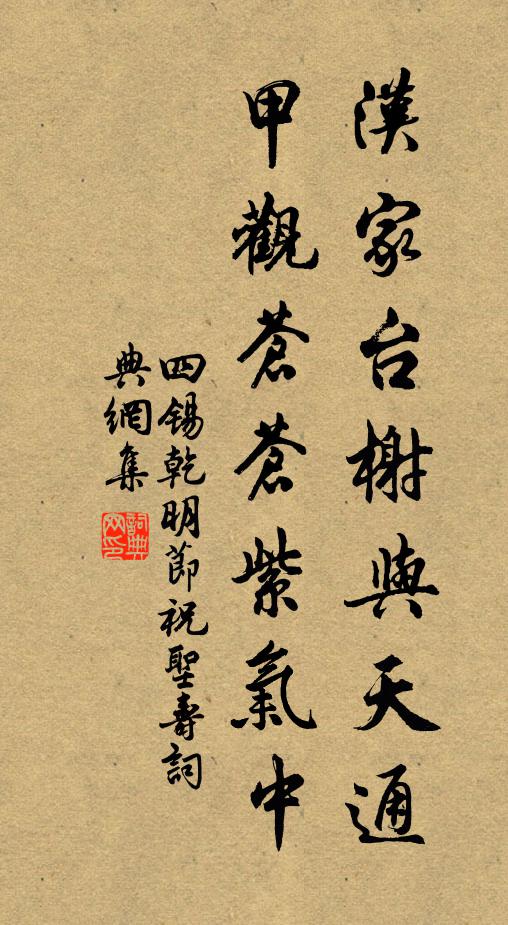 漢家台榭與天通
甲觀蒼蒼紫氣中
四錫乾明節祝聖壽詞
典網集
詞典網印